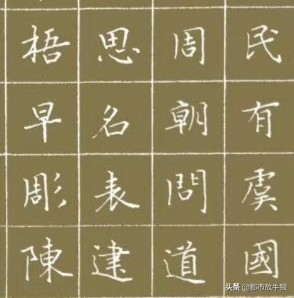 民有虞國
周朝問道
思名表建
梧早彫陳
头条 @都市放牛